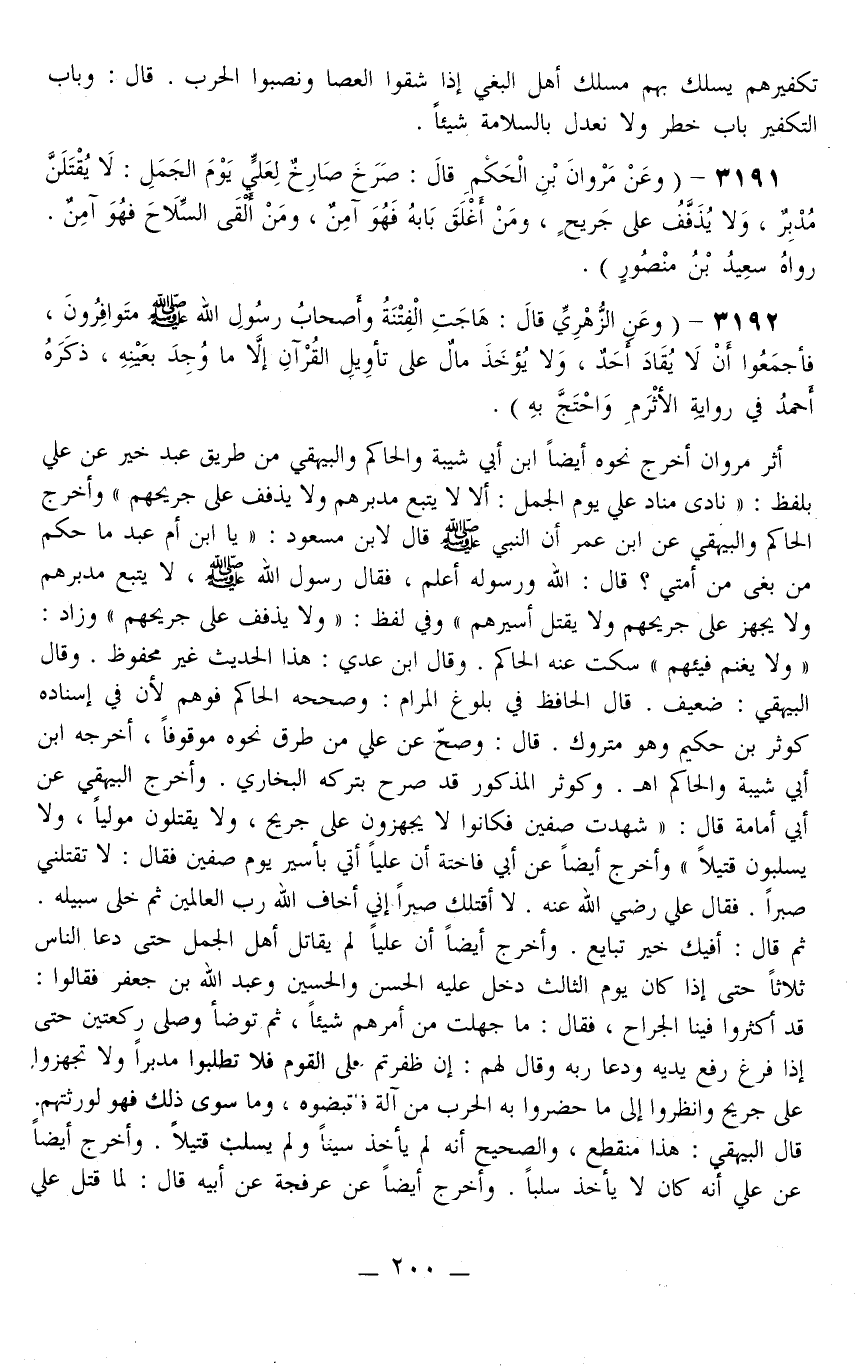 تكفيرهم يسلك بهم مسلك أهل البغي إذا شقوا العصا ونصبوا الحرب . قال : وباب
التكفير باب خطر ولا نعدل بالسلامة شيئاً .
٣١٩١ – ( وعَنْ مَرْوانَ بْنِ الْحَكَمِ قالَ : صَرَخَ صَارِخٌ لِعَليٍّ يَوْمَ الجَمَلِ : لَا يُقْتَلَنَّ
مُدْبِرٌ ، وَلا يُذَفَّفُ على جَريحٍ ، ومَنْ أَغْلَقَ بَابهُ فَهُوَ آمِنٌ ، ومَنْ أَلْقَى السِّلَاحَ فهُوَ آمِنٌ .
رواهُ سعِيدُ بْنُ منْصُورٍ ) .
٣١٩٢ – ( وعَنِ الزُّهْرِيِّ قالَ : هَاجَتِ الْفِتْنَةُ وأَصحابُ رسُولِ الله ﷺ متَوافِرُونَ ،
فأجمَعُوا أَنْ لَا يُقَادَ أَحَدٌ ، وَلا يُؤخَذَ مالٌ على تأويلِ القُرْآنِ إلَّا ما وُجِدَ بعَيْنِهِ ، ذكَرَهُ
أَحمدُ في روايةِ الأثْرَمِ وَاحْتَجَّ بهِ ) .
أثر مروان أخرج نحوه أيضاً ابن أبي شيبة والحاكم والبيهقي من طريق عبد خير عن علي
بلفظ : « نادى مناد علي يوم الجمل : ألا لا يتبع مدبرهم ولا يذفف على جريحهم » وأخرج
الحاكم والبيهقي عن ابن عمر أن النبي ﷺ قال لابن مسعود : « يا ابن أم عبد ما حكم
من بغى من أمتي ؟ قال : الله ورسوله أعلم ، فقال رسول الله ﷺ ، لا يتبع مدبرهم
ولا يجهز على جريحهم ولا يقتل أسيرهم » وفي لفظ : « ولا يذفف على جريحهم » وزاد :
« ولا يغنم فيئهم » سكت عنه الحاكم . وقال ابن عدي : هذا الحديث غير محفوظ . وقال
البيهقي : ضعيف . قال الحافظ في بلوغ المرام : وصححه الحاكم فوهم لأن في إسناده
كوثر بن حكيم وهو متروك . قال : وصحّ عن علي من طرق نحوه موقوفاً ، أخرجه ابن
أبي شيبة والحاكم اهـ . وكوثر المذكور قد صرح بتركه البخاري . وأخرج البيهقي عن
أبي أمامة قال : « شهدت صفين فكانوا لا يجهزون على جريح ، ولا يقتلون مولياً ، ولا
يسلبون قتيلاً » وأخرج أيضاً عن أبي فاختة أن علياً أتي بأسير يوم صفين فقال : لا تقتلني
صبراً . فقال علي رضي الله عنه . لا أقتلك صبراً إني أخاف الله رب العالمين ثم خلى سبيله .
ثم قال : أفيك خير تبايع . وأخرج أيضاً أن علياً لم يقاتل أهل الجمل حتى دعا الناس
ثلاثاً حتى إذا كان يوم الثالث دخل عليه الحسن والحسين وعبد الله بن جعفر فقالوا :
قد أكثروا فينا الجراح ، فقال : ما جهلت من أمرهم شيئاً ، ثم توضأ وصلى ركعتين حتى
إذا فرغ رفع يديه ودعا ربه وقال لهم : إن ظفرتم على القوم فلا تطلبوا مدبراً ولا تجهزوا
على جريح وانظروا إلى ما حضروا به الحرب من آلة فاقبضوه ، وما سوى ذلك فهو لورثتهم.
قال البيهقي : هذا منقطع ، والصحيح أنه لم يأخذ سيئاً ولم يسلب قتيلاً . وأخرج أيضاً
عن علي أنه كان لا يأخذ سلباً . وأخرج أيضاً عن عرفجة عن أبيه قال : لما قتل علي
– ٢٠٠ –